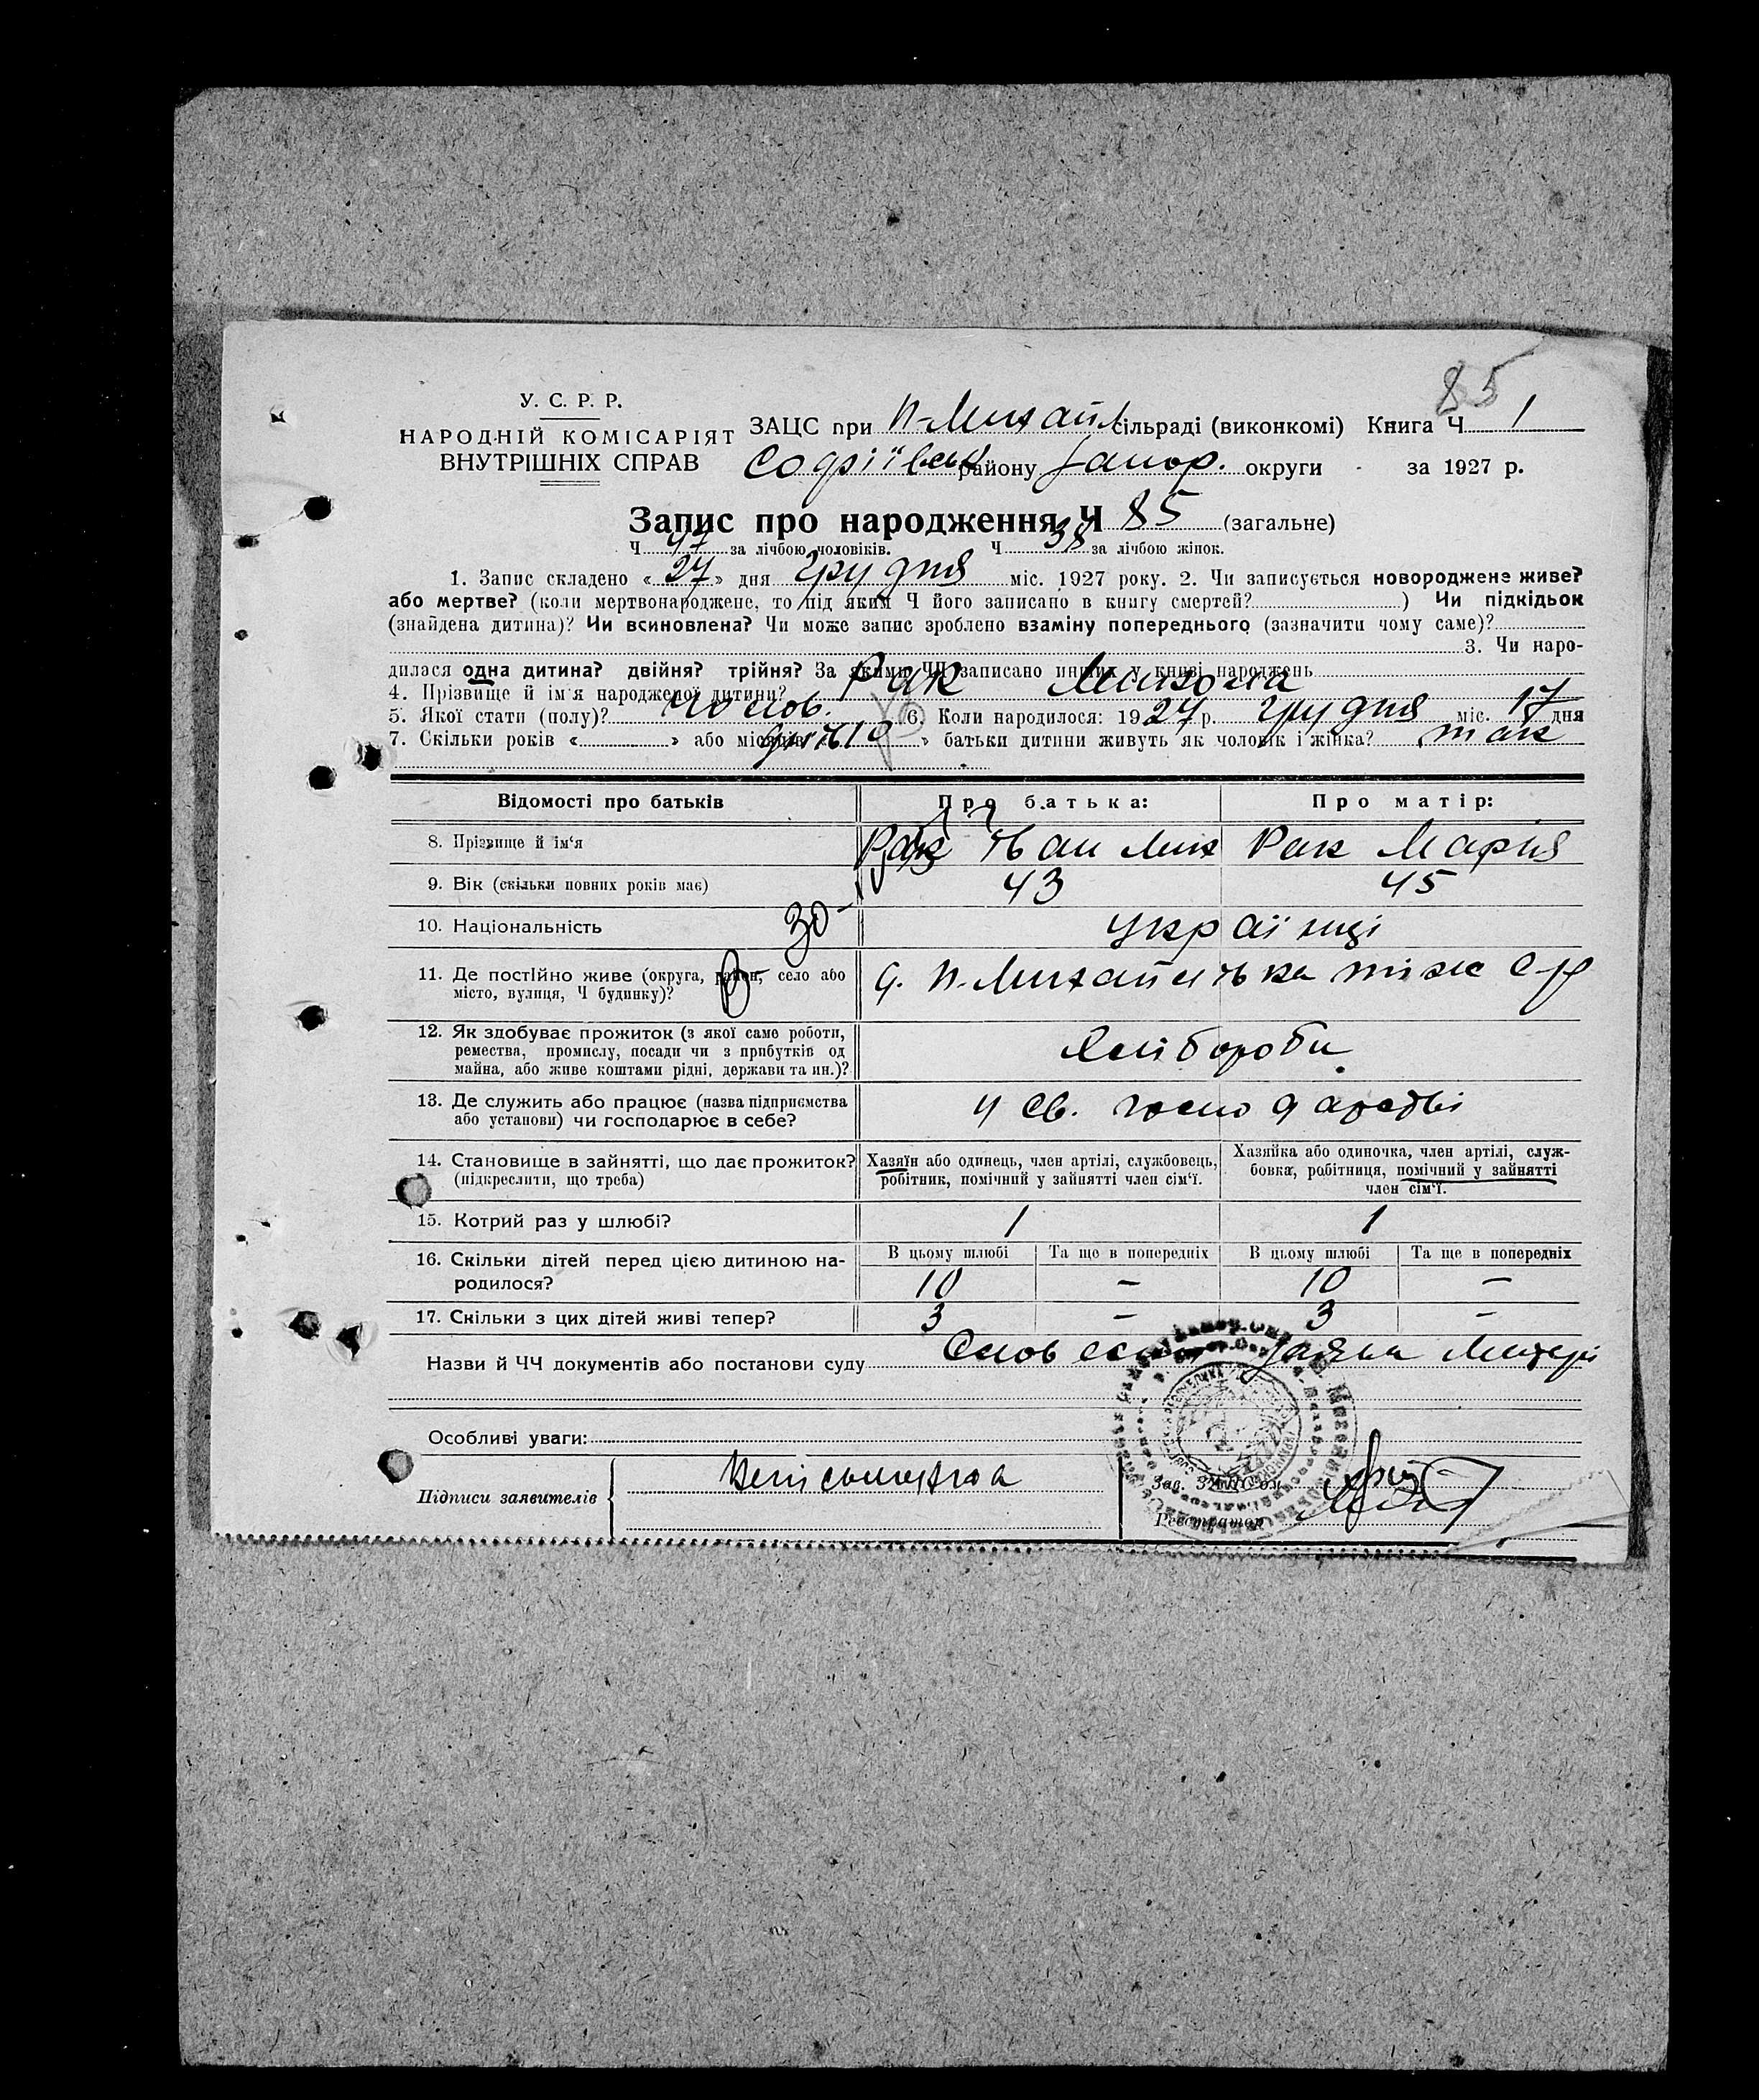 85
У. С. Р. Р.
НАРОДНІЙ КОМІСАРІЯТ
ВНУТРІШНІХ СПРАВ
ЗАЦС при Н-Михайл сільраді (виконкомі) Книга Ч 1
Софіївськ району Запор. округи за 1927 р.
Запис про народження Ч 85 (загальне)
Ч 47 за лічбою чоловіків. Ч 38 за лічбою жінок.
1. Запис складено « 27 » дня Грудня міс. 1927 року. 2. Чи записується новороджене живе?
або мертве? (коли мертвонароджене, то під яким Ч його записано в книгу смертей? ) Чи підкідьок
(знайдена дитина)? Чи всиновлена? Чи може запис зроблено взаміну попереднього (зазначити чому саме)?
3. Чи наро-
дилася одна дитина? двійня? трійня? За якими ЧЧ записано инших у книзі народжень
4. Прізвище й ім'я народженої дитини? Рак Микола
5. Якої стати (полу)? чолов. 6. Коли народилося: 1927 р. Грудня міс. 17 дня
7. Скільки років « » або місяців « » батьки дитини живуть як чоловік і жінка? так
Відомості про батьків
Про батька:
Про матір:
8. Прізвище й ім'я Рак Іван Мих Рак Марія
9. Вік (скільки повних років має) 43 45
10. Національність 30 українці
11. Де постійно живе (округа, район, село або
місто, вулиця, Ч будинку)?
с. Н-Михайлівка
12. Як здобуває прожиток (з якої саме роботи,
ремества, промислу, посади чи з прибутків од
майна, або живе коштами рідні, держави та ин.)?
Хлібороби
13. Де служить або працює (назва підприємства
або установи) чи господарює в себе?
у св. господарстві
14. Становище в зайнятті, що дає прожиток?
(підкреслити, що треба)
Хазяїн або одинець, член артілі, службовець,
робітник, помічний у зайнятті член сім'ї.
Хазяйка або одиночка, член артілі, служ-
бовка, робітниця, помічний у зайнятті
член сім'ї.
15. Котрий раз у шлюбі? 1 1
16. Скільки дітей перед цією дитиною на-
родилося?
В цьому шлюбі Та ще в попередніх В цьому шлюбі Та ще в попередніх
10 - 10 -
17. Скільки з цих дітей живі тепер? 3 - 3 -
Назви й ЧЧ документів або постанови суду Словесна заява Матері
Особливі уваги:
Підписи заявителів
Неписьменна
Зав. ЗАЦС'ом
Реєстратор